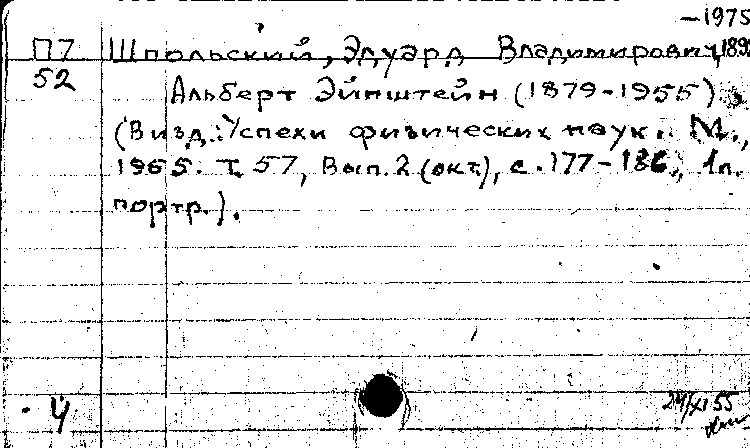 —1975
П7 Шпольский, Эдуард Владимирович, 1892
52
Альберт Эйнштейн (1879-1955)
(В изд.: Успехи физических наук. М.,
1955. Т. 57, Вып. 2 (окт.), с. 177-186, 1л.
портр.).
Ч
24/XI 55